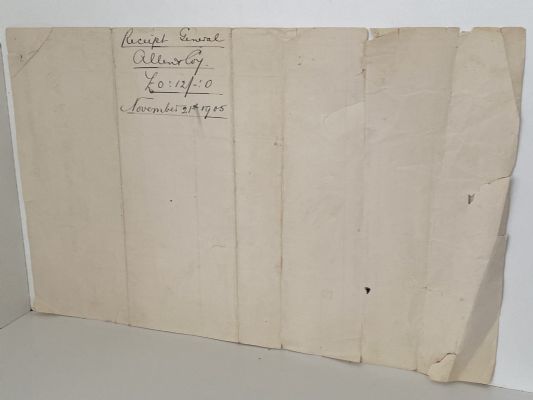 Receipt General
Allen & Coy.
£0:12/-:0
November 21st 1905